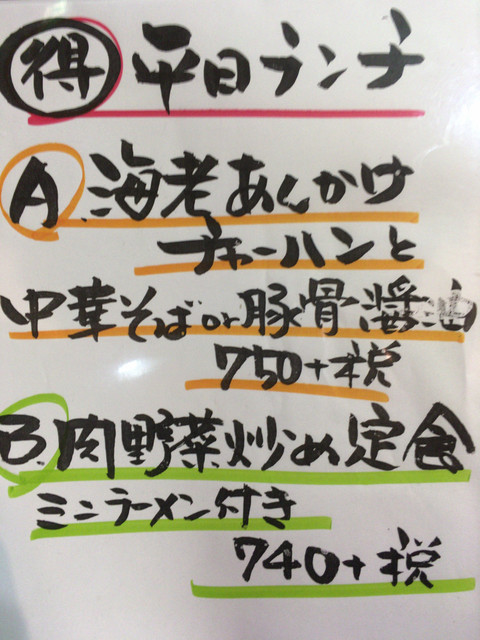 得 平日ランチ
A.海老あんかけ
チャーハンと
中華そばor豚骨醤油
750+税
B.肉野菜炒め定食
ミニラーメン付き
740+税